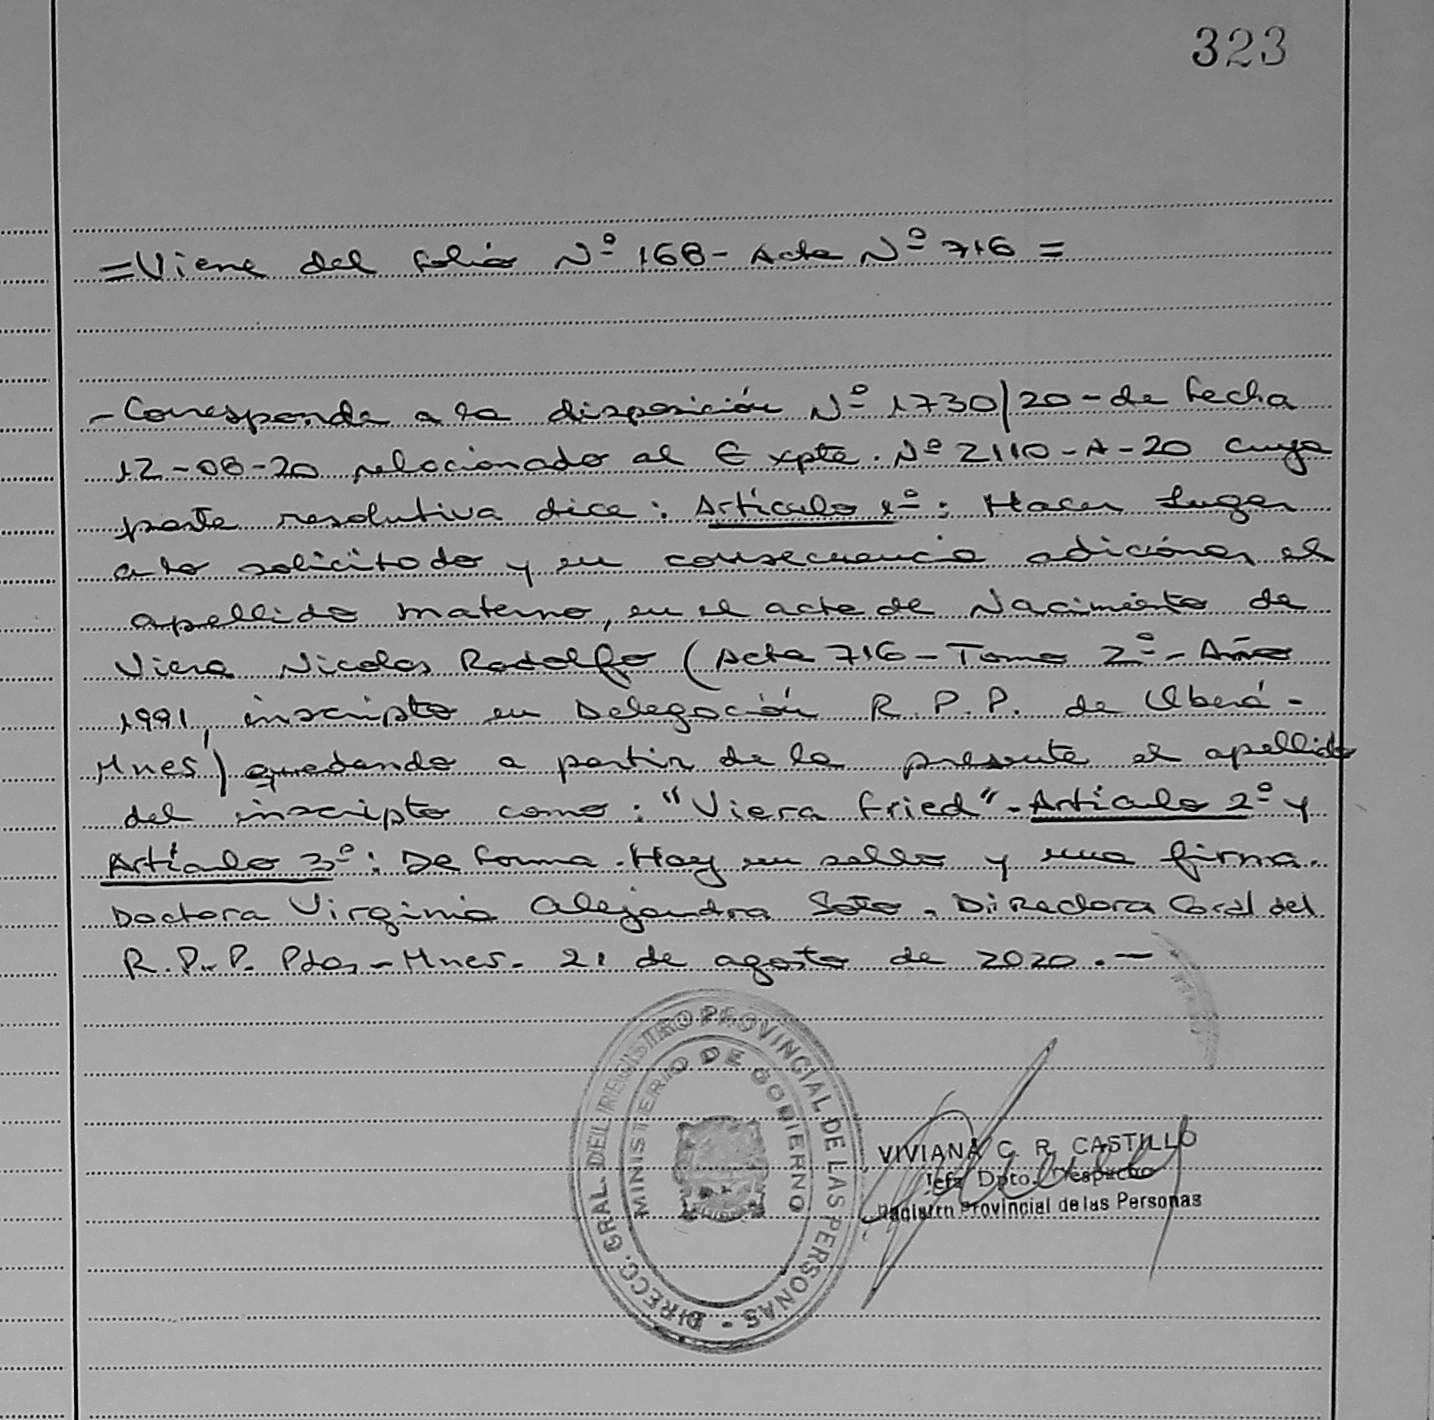 323
=Viene del folio Nº 168- Acta Nº 716=
-Corresponde a la disposición Nº 1730/20-de fecha
12-08-20 relacionado al Expte. Nº 2110-A-20 cuya
parte resolutiva dice: Artículo 1º: Hacer lugar
a lo solicitado y en consecuencia adicionar el
apellido materno, en el acta de Nacimiento de
Viera Nicolas Rodolfo (Acta 716-Tomo 2º-Año
1991, inscripto en Delegación R.P.P. de Oberá-
Mnes) quedando a partir de la presente el apellido
del inscripto como: "Viera Fried"-Artículo 2º y
Artículo 3º: De forma. Hay un sello y una firma.
Doctora Virginia Alejandra Soto. Directora Gral del
R.P.P. Pdas-Mnes- 21 de agosto de 2020.-
DIRECC. GRAL. DEL REGISTRO PROVINCIAL DE LAS PERSONAS -
MINISTERIO DE GOBIERNO
VIVIANA C. R. CASTILLO
Jefa Dpto. Despacho
Registro Provincial de las Personas